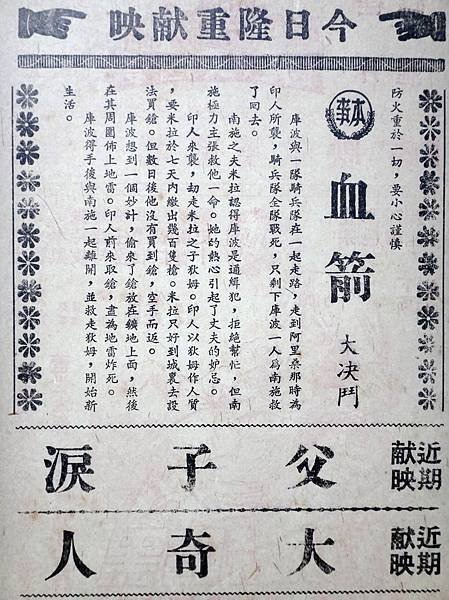 今日隆重献映
防火重於一切，要小心謹慎
本事
血箭
大決鬥
庫波與一隊騎兵隊在一起走路，走到阿里桑那時為
印人所襲，騎兵隊全隊戰死，只剩下庫波一人為南施救
了回去。
南施之夫米拉認得庫波是通緝犯，拒絕幫忙，但南
施極力主張救他一命。她的熱心引起了丈夫的妒忌。
印人來襲，刧走米拉之子狄姆。印人以狄姆作人質
，要米拉於七天內繳出幾百隻鎗。米拉只好到城裏去設
法買鎗。但數日後他沒有買到鎗，空手而返。
庫波想到一個妙計，偷來了鎗放在鑛地上面，然後
在其周圍佈上地雷。印人前來取鎗，盡為地雷炸死。
庫波得手後與南施一起離開，並救走狄姆，開始新
生活。
近期
献映
父子淚
近期
献映
大奇人